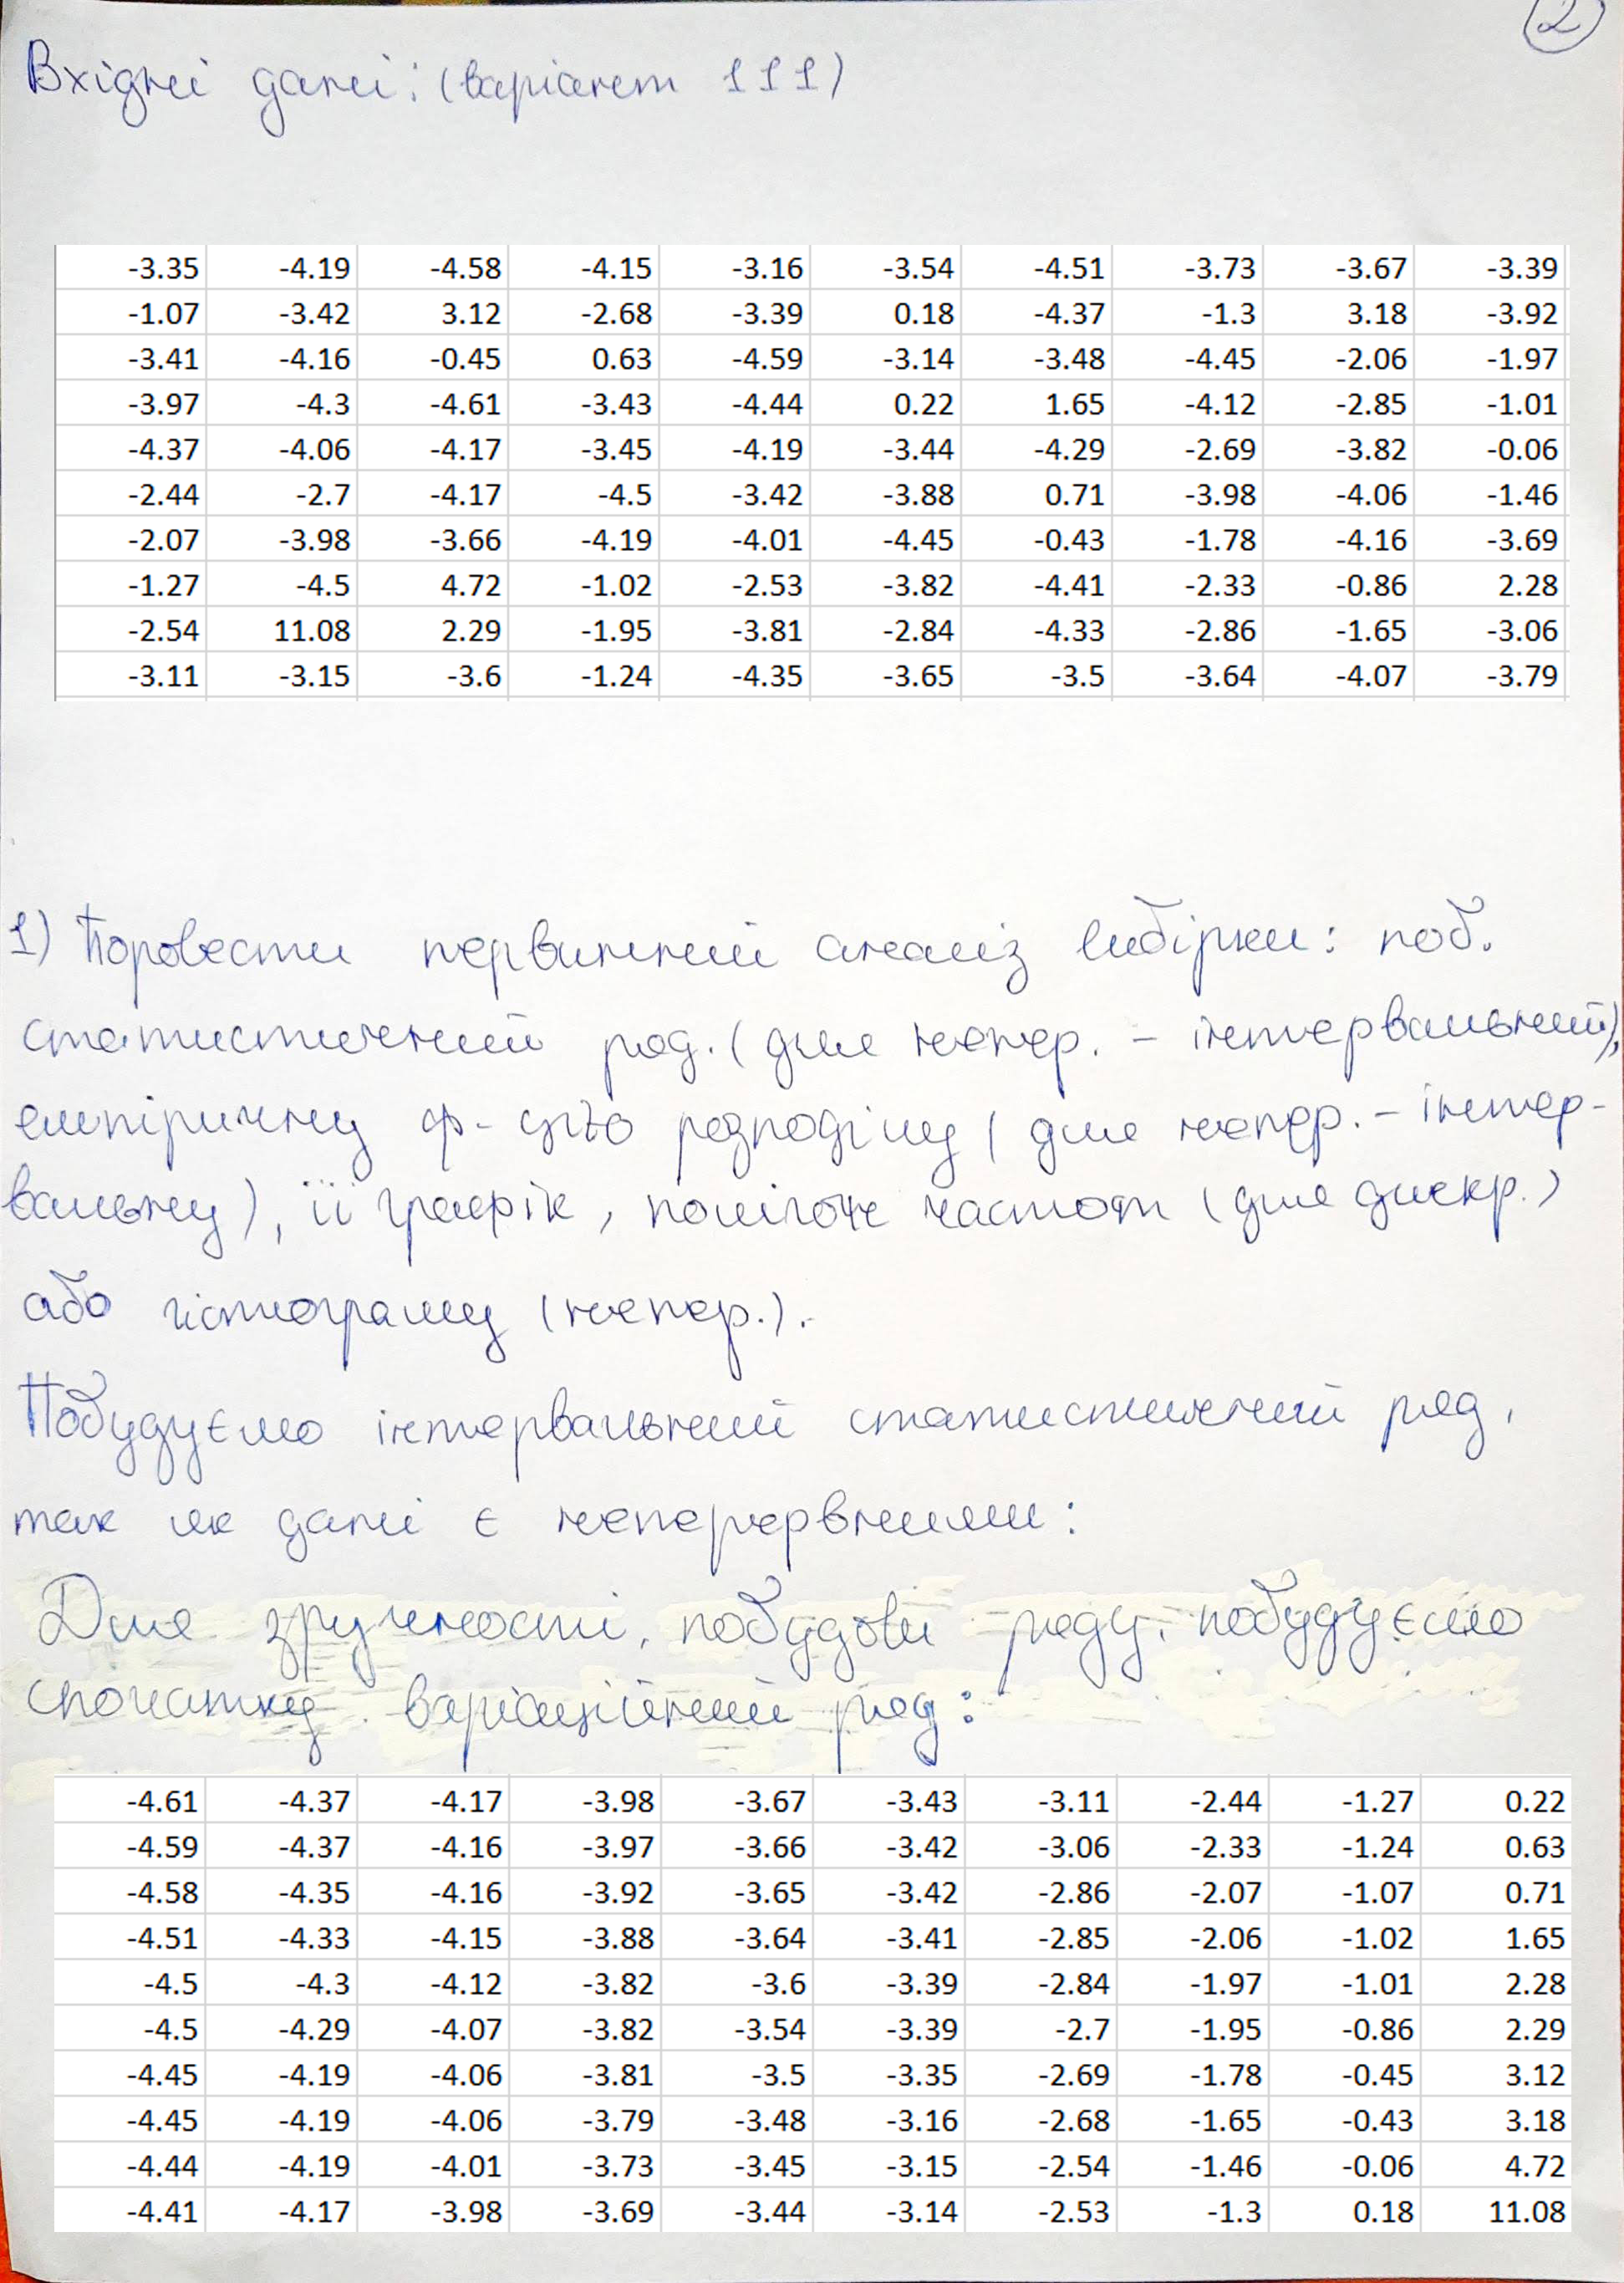 2
Вхідні дані: (варіант 111)
-3.35 -4.19 -4.58 -4.15 -3.16 -3.54 -4.51 -3.73 -3.67 -3.39
-1.07 -3.42 3.12 -2.68 -3.39 0.18 -4.37 -1.3 3.18 -3.92
-3.41 -4.16 -0.45 0.63 -4.59 -3.14 -3.48 -4.45 -2.06 -1.97
-3.97 -4.3 -4.61 -3.43 -4.44 0.22 1.65 -4.12 -2.85 -1.01
-4.37 -4.06 -4.17 -3.45 -4.19 -3.44 -4.29 -2.69 -3.82 -0.06
-2.44 -2.7 -4.17 -4.5 -3.42 -3.88 0.71 -3.98 -4.06 -1.46
-2.07 -3.98 -3.66 -4.19 -4.01 -4.45 -0.43 -1.78 -4.16 -3.69
-1.27 -4.5 4.72 -1.02 -2.53 -3.82 -4.41 -2.33 -0.86 2.28
-2.54 11.08 2.29 -1.95 -3.81 -2.84 -4.33 -2.86 -1.65 -3.06
-3.11 -3.15 -3.6 -1.24 -4.35 -3.65 -3.5 -3.64 -4.07 -3.79
1) Провести первинний аналіз вибірки: поб.
статистичний ряд. (для непер. – інтервальний),
емпіричну ф-цію розподілу (для непер. – інтер-
вальну), її графік, полігон частот (для дискр.)
або гістограму (непер.).
Побудуємо інтервальний статистичний ряд,
так як дані є неперервними:
Для зручності, побудови ряду, побудуємо
спочатку варіаційний ряд:
-4.61 -4.37 -4.17 -3.98 -3.67 -3.43 -3.11 -2.44 -1.27 0.22
-4.59 -4.37 -4.16 -3.97 -3.66 -3.42 -3.06 -2.33 -1.24 0.63
-4.58 -4.35 -4.16 -3.92 -3.65 -3.42 -2.86 -2.07 -1.07 0.71
-4.51 -4.33 -4.15 -3.88 -3.64 -3.41 -2.85 -2.06 -1.02 1.65
-4.5 -4.3 -4.12 -3.82 -3.6 -3.39 -2.84 -1.97 -1.01 2.28
-4.5 -4.29 -4.07 -3.82 -3.54 -3.39 -2.7 -1.95 -0.86 2.29
-4.45 -4.19 -4.06 -3.81 -3.5 -3.35 -2.69 -1.78 -0.45 3.12
-4.45 -4.19 -4.06 -3.79 -3.48 -3.16 -2.68 -1.65 -0.43 3.18
-4.44 -4.19 -4.01 -3.73 -3.45 -3.15 -2.54 -1.46 -0.06 4.72
-4.41 -4.17 -3.98 -3.69 -3.44 -3.14 -2.53 -1.3 0.18 11.08